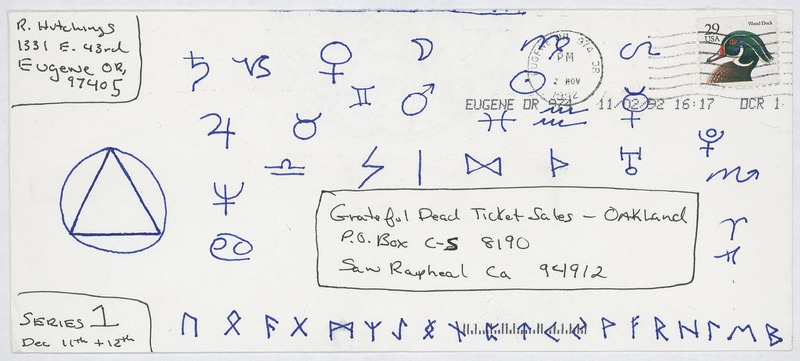 R. Hutchings
1331 E. 43rd
Eugene OR,
97405
29
USA
Wood Duck
PM
2 NOV
1992
EUGENE OR 974 11/02/92 16:17 OCR 1
♄ ♑ ♀ ☽ ♍ ♌
♊ ♂ ☉
♃ ♉ ♓ ♒ ☿
♎ ᛋ ᛁ ᛞ ᚦ ♅ ♇
♆ ♏
♋ ♈
♐
Grateful Dead Ticket Sales – OAKLand
P.O. Box C-S 8190
San Rapheal Ca 94912
SERIES 1
Dec 11th + 12th